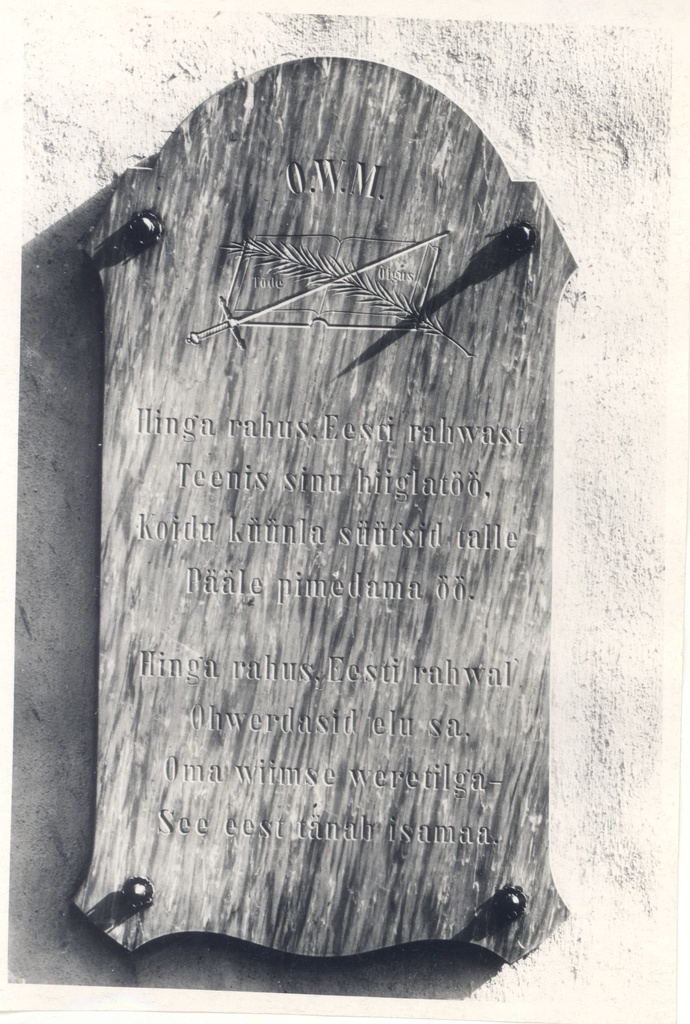 O.W.M.
Tõde Õigus
Hinga rahus, Eesti rahwast
Teenis sinu hiiglatöö,
Koidu küünla süütsid talle
Pääle pimedama öö.
Hinga rahus, Eesti rahwal'
Ohwerdasid elu sa,
Oma wiimse weretilga–
See eest tänab isamaa.